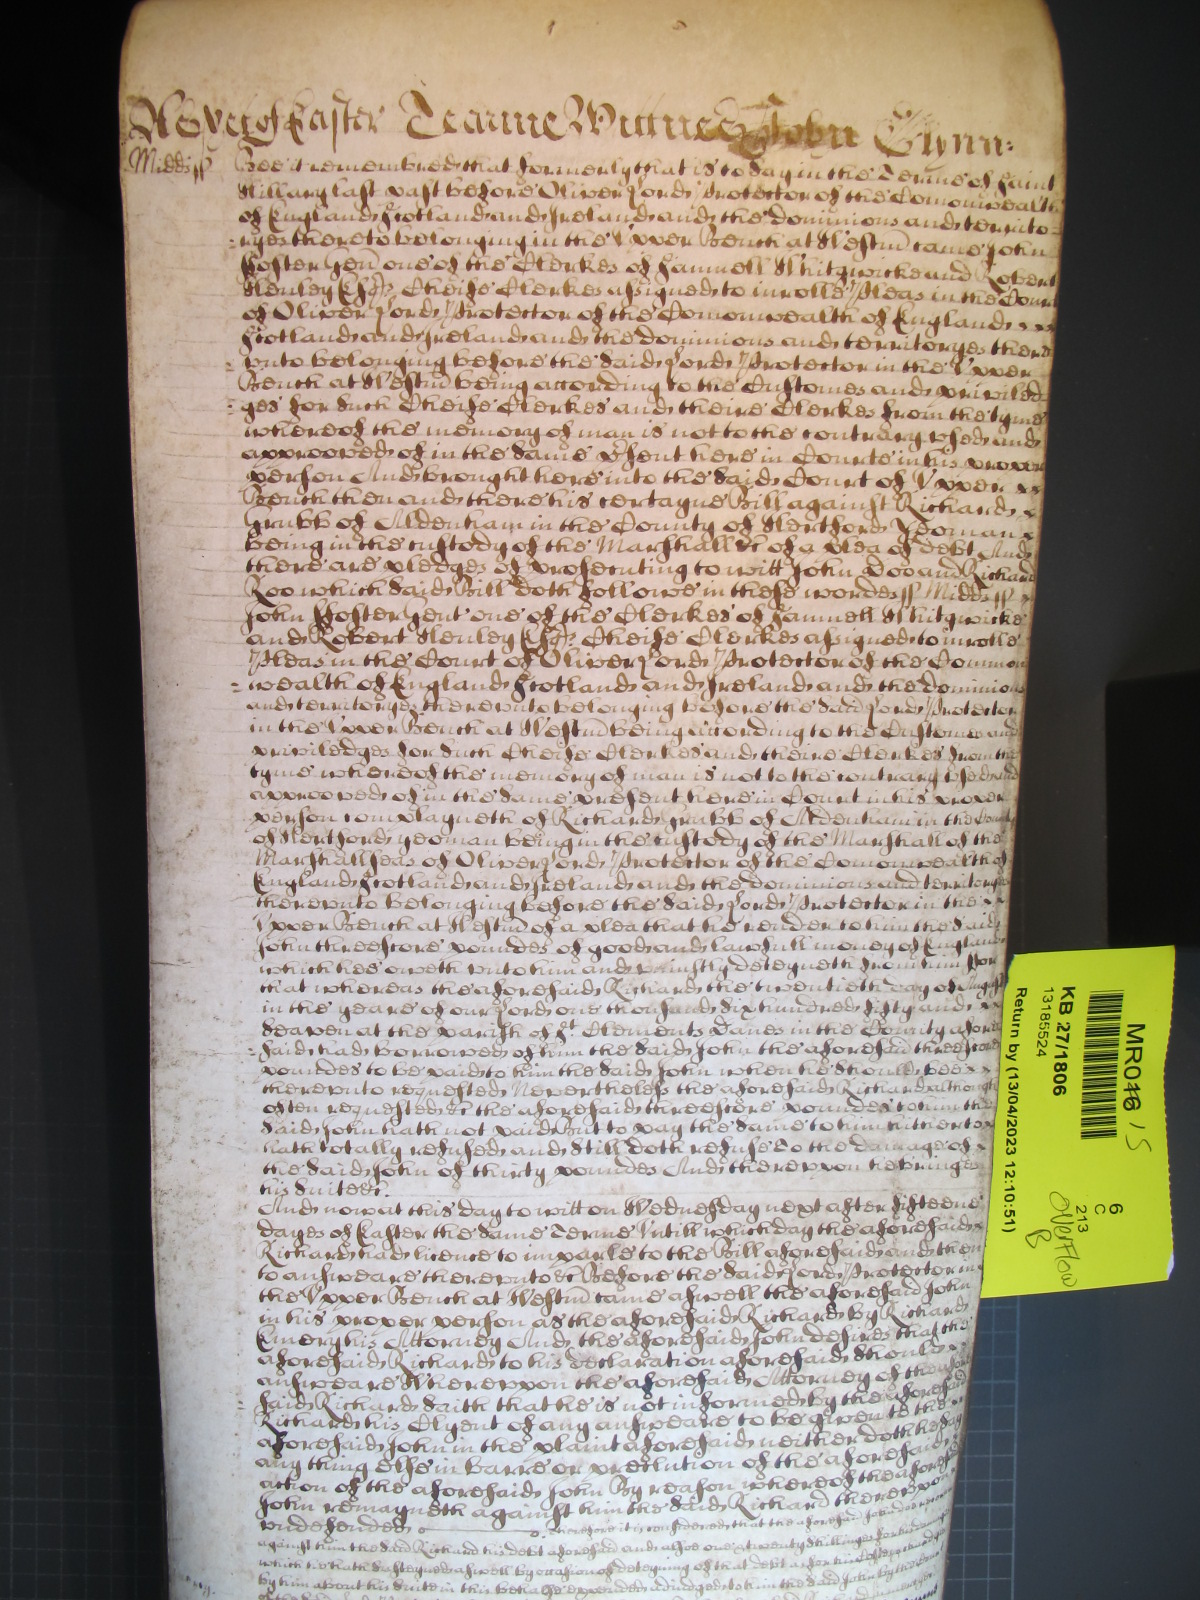 As yet of Easter Tearme Wittnes John Glynn:
Midds ss Bee it remembred that formerly that is to say in the Terme of Saint
Hillary last past before Oliver Lord Protector of the Comonwealth
of England Scotland and Ireland and the dominions and territo
ryes thereto belonging in the Upper Bench at Westm came John
Foster gen one of the Clerkes of Samuell Whitgwicke and Robert
Henley Cheife Clerkes assigned to inrolle Pleas in the Court
of Oliver Lord Protector of the Comonwealth of England
Scotland and Ireland and the dominions and territoryes there
unto belonging before the said Lord Protector in the Upper
Bench at Westm being according to the Customes and priviled
ges for such Cheife Clerkes and theire Clerkes from the tyme
whereof the memory of man is not to the contrary used and
approoved of in the same p'sent here in Courte in his proper
person And brought here into the said Court of Upper
Bench then and there his certayne Bill against Richard
Grubb of Aldenham in the County of Hertford Yeoman
being in the custody of the Marshall &c of a plea of debt And
there are pledges of prosecuting to witt John Doo and Richard
Roo which said Bill doth followe in these wordes ss Midds ss
John Foster gent one of the Clerkes of Samuell Whitgwicke
and Robert Henley Cheife Clerkes assigned to inrolle
Pleas in the Court of Oliver Lord Protector of the Common
wealth of England Scotland and Ireland and the dominions
and territoryes thereunto belonging before the said Lord Protector
in the Upper Bench at Westm being according to the Customes and
priviledges for such Cheife Clerkes and theire Clerkes from the
tyme whereof the memory of man is not to the contrary used and
approoved of in the same present here in Court in his proper
person complayneth of Richard Grubb of Aldenham in the County
of Hertford yeoman being in the custody of the Marshall of the
Marshallseas of Oliver Lord Protector of the Comonwealth of
England Scotland and Ireland and the dominions and territoryes
thereunto belonging before the said Lord Protector in the
Upper Bench at Westm of a plea that he render to him the said
John threescore poundes of good and lawfull money of England
which hee oweth unto him and uniustly deteyneth from him For
that whereas the aforesaid Richard the twentieth day of August
in the yeare of our Lord one thousand six hundred fifty and
seaven at the parish of St Clements Danes in the County afore
said had borrowed of him the said John the aforesaid threescore
poundes to be paid to him the said John when he should bee
thereunto requested Neverthelesse the aforesaid Richard although
often requested &c the aforesaid threescore poundes to him the
said John hath not paid But to pay the same to him hitherto
hath totally refused and still doth refuse To the damage of
the said John of thirty poundes And thereupon he bringes
his suite &c.
And now at this day to witt on Wednesday next after fifteene
dayes of Easter the same Terme Untill which day the aforesaid
Richard had licence to imparle to the Bill aforesaid and then
to answeare thereunto &c Before the said Lord Protector in
the Upper Bench at Westm came aswell the aforesaid John
in his proper person as the aforesaid Richard by Richard
Emery his Attorney And the aforesaid John desires that the
aforesaid Richard to his declaration aforesaid should
answeare Whereupon the aforesaid Attorney of the afore
said Richard saith that he is not informed by the aforesaid
Richard his Clyent of any answeare to be given to the
aforesaid John in the plaint aforesaid neither doth he say
any thing else in barre or preclution of the aforesaid
action of the aforesaid John By reason whereof the aforesaid
John remayneth against him the said Richard thereupon
undefended Therefore it is considered that the aforesaid John doe recover
against him the said Richard his debt aforesaid and alsoe one & twenty shillinges for his damages
which he hath susteyned aswell by occasion of deteyning of that debt as for his
by him about his suite in this behalfe expended adiudged to him the said John by the Court
MR046 15
KB 27/1806
13185524
Return by (13/04/2023 12:10:51)
6
C
213
Overflow
B